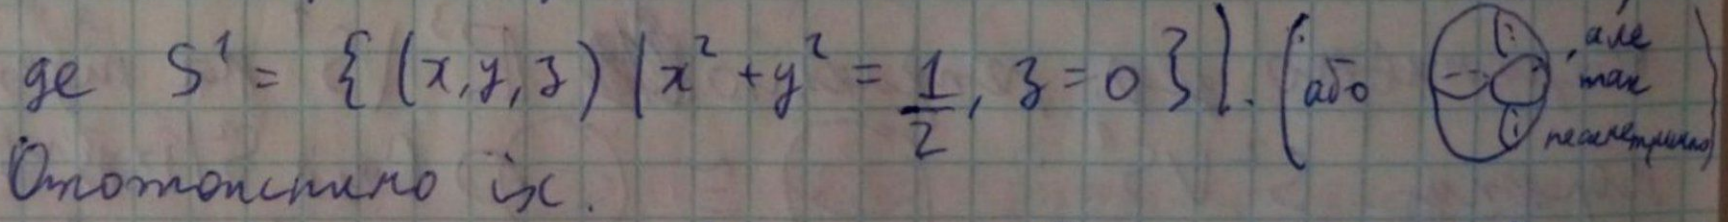 де S¹ = { (x, y, z) | x² + y² = 1/2, z = 0 } ]. (або , але так несиметрично)
Ототожнимо їх.